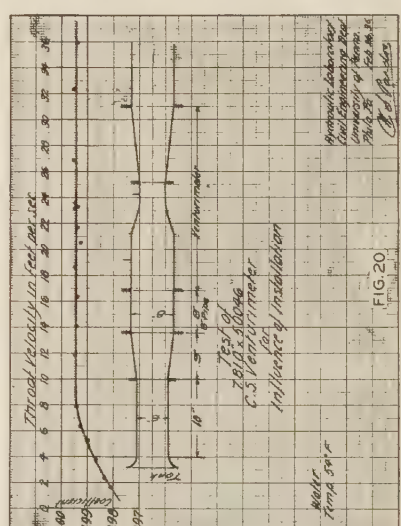 Throat Velocity in Feet per sec
0 2 4 6 8 10 12 14 16 18 20 22 24 26 28 30 32 34 36
Coefficient
.99
.98
.97
Tank
10"
Venturimeter
Test of
7.810 x 5.0046"
C.S. Venturimeter
for
Influence of Installation
Water
Temp. 54°F
Hydraulic Laboratory
Civil Engineering Dept
University of Penna.
Phila Pa
FIG. 20